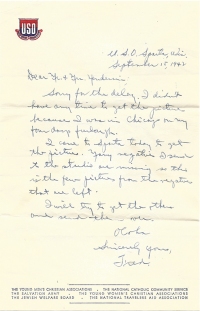 USO
U.S.O. Sparta, Wis.
September 15, 1942
Dear Mr. & Mrs.
Sorry for the delay. I didn't
have any time to get the pictures
because I was in Chicago on my
four day furlough.
I came to Sparta today to get
the pictures. Your negatives I
to the studio are missing so this
is the few pictures from the negatives
that are left.
I'll try to get the
and send the
Sincerely Yours,
THE YOUNG MEN'S CHRISTIAN ASSOCIATIONS · THE NATIONAL CATHOLIC COMMUNITY SERVICE
THE SALVATION ARMY · THE YOUNG WOMEN'S CHRISTIAN ASSOCIATIONS
THE JEWISH WELFARE BOARD · THE NATIONAL TRAVELERS AID ASSOCIATION